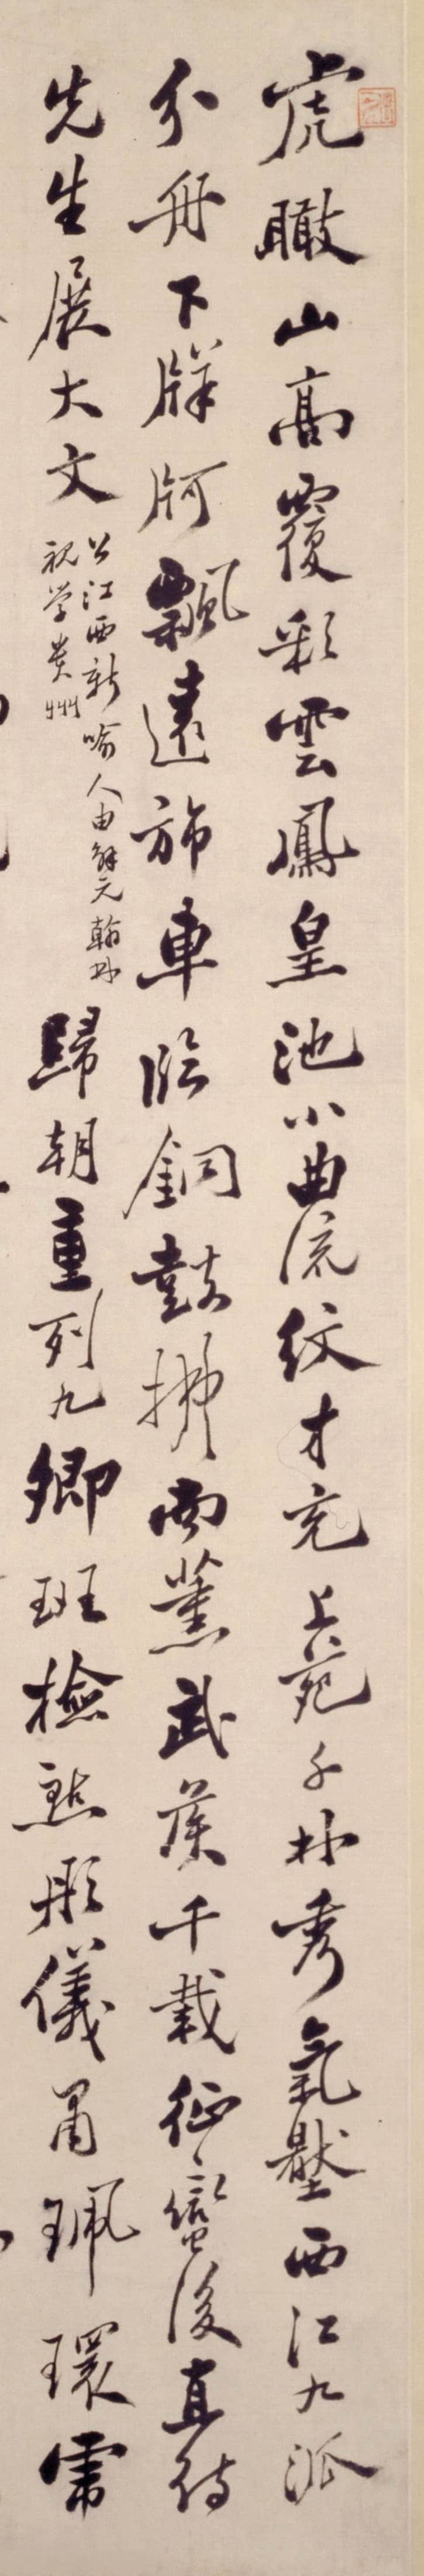 虎瞰山高覆彩雲鳳皇池小曲流紋才充上苑千林秀氣壓西江九派
分舟下牂牁飄遠旆車臨銅鼓拂南薰武侯千載征蠻後直待
先生展大文
公江西新喻人由解元翰林
視學貴州
歸朝重列九卿班檢點彤儀肅珮環霈